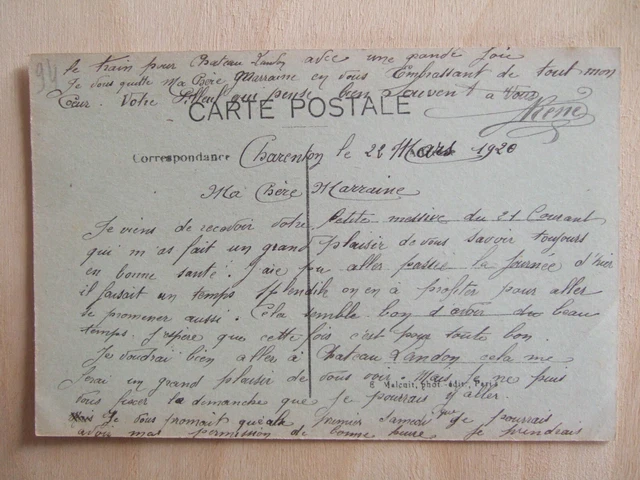 94
le train pour Chateau Landon avec une grande Joie
Je vous quitte Ma Chère Marraine en vous Embrassant de tout mon
Cœur. Votre filleul qui pense bien souvent a vous
René
CARTE POSTALE
Correspondance
Charenton le 22 Mars 1920
Ma Chère Marraine
Je viens de recevoir votre Petite missive du 21 Courant
qui m'as fait un grand plaisir de vous savoir toujours
en bonne santé. J'aie pu aller passée la Journée d'hier
il faisait un temps splendide on en à profiter pour aller
se prominer aussi. Cela semble bon d'avoir du beau
temps. J'espère que cette fois c'est pour toute bon.
Je voudrai bien aller à Chateau Landon cela me
serai un grand plaisir de vous voir. Mais Je ne puis
E. Malcuit, phot.-édit., Paris
vous fixer la dimanche que je pourrais y aller.
Je vous promait qu'au premier Samedi que Je pourrais
avoir mas permission de bonne heure je prendrais